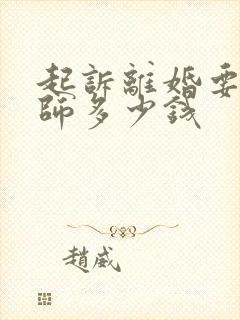 起訴離婚要
師多少錢
趙威